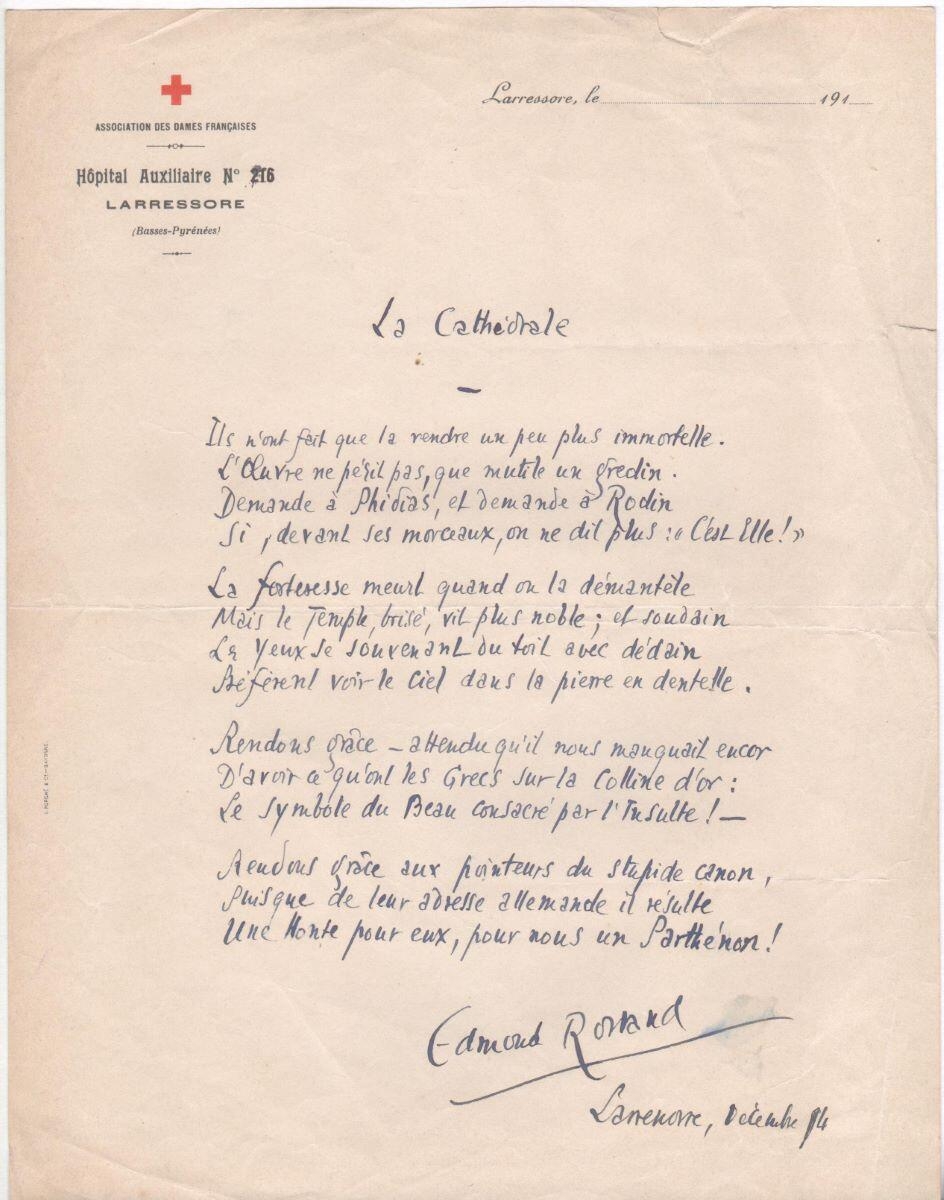 ASSOCIATION DES DAMES FRANÇAISES
Hôpital Auxiliaire N° 216
LARRESSORE
(Basses-Pyrénées)
Larressore, le 191
La Cathédrale
Ils n'ont fait que la rendre un peu plus immortelle.
L'Œuvre ne périt pas, que mutile un gredin.
Demande à Phidias, et demande à Rodin
Si, devant ses morceaux, on ne dit plus : « C'est Elle ! »
La forteresse meurt quand on la démantèle
Mais le Temple, brisé, vit plus noble ; et soudain
Les Yeux se souvenant du toit avec dédain
Préfèrent voir le ciel dans la pierre en dentelle.
Rendons grâce – attendu qu'il nous manquait encor
D'avoir ce qu'ont les Grecs sur la Colline d'or :
Le symbole du Beau consacré par l'Insulte ! –
Rendons grâce aux pointeurs du stupide canon,
Puisque de leur adresse allemande il résulte
Une Honte pour eux, pour nous un Parthénon !
Edmond Rostand
Larressore, Décembre 14